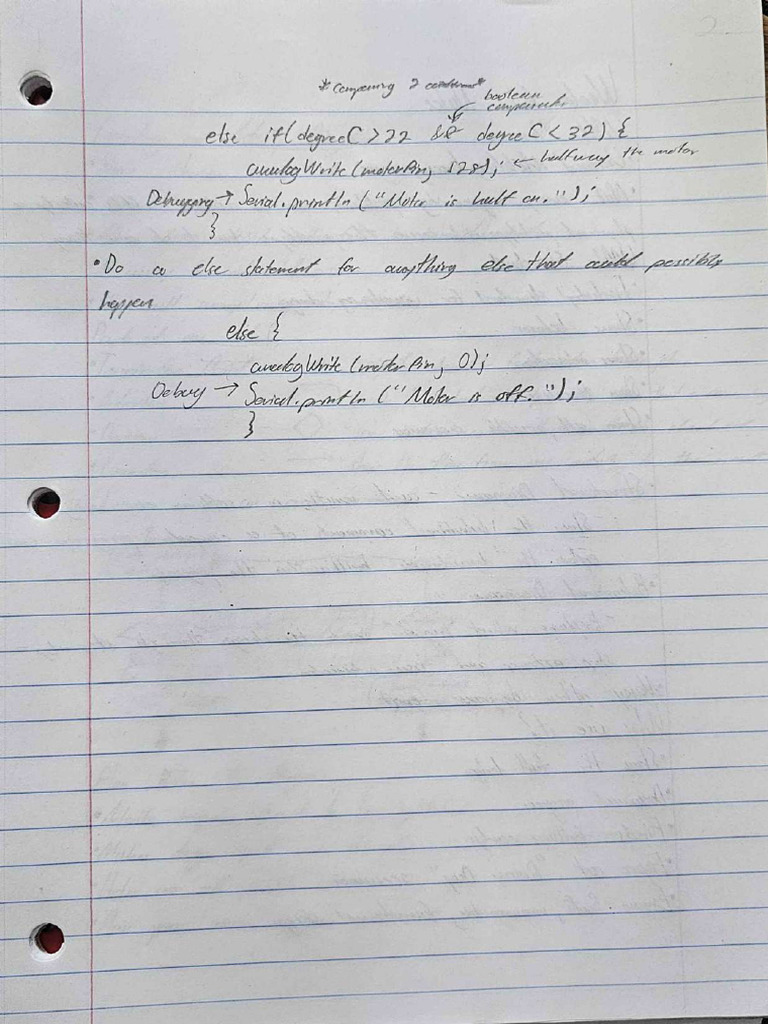 * Comparing 2
boolean
components
else if(degreeC > 22 && degreeC < 32) {
analogWrite(motorPin, 128); ← halfway the motor
Debugging → Serial.println ("Motor is half on.");
}
• Do a else statement for anything else that could possibly
happen
else {
analogWrite(motorPin, 0);
Debug → Serial.println ("Motor is off.");
}